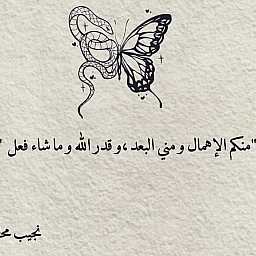 "منكم الإهمال ومني البعد ،و قدر الله وما شاء فعل "
نجيب